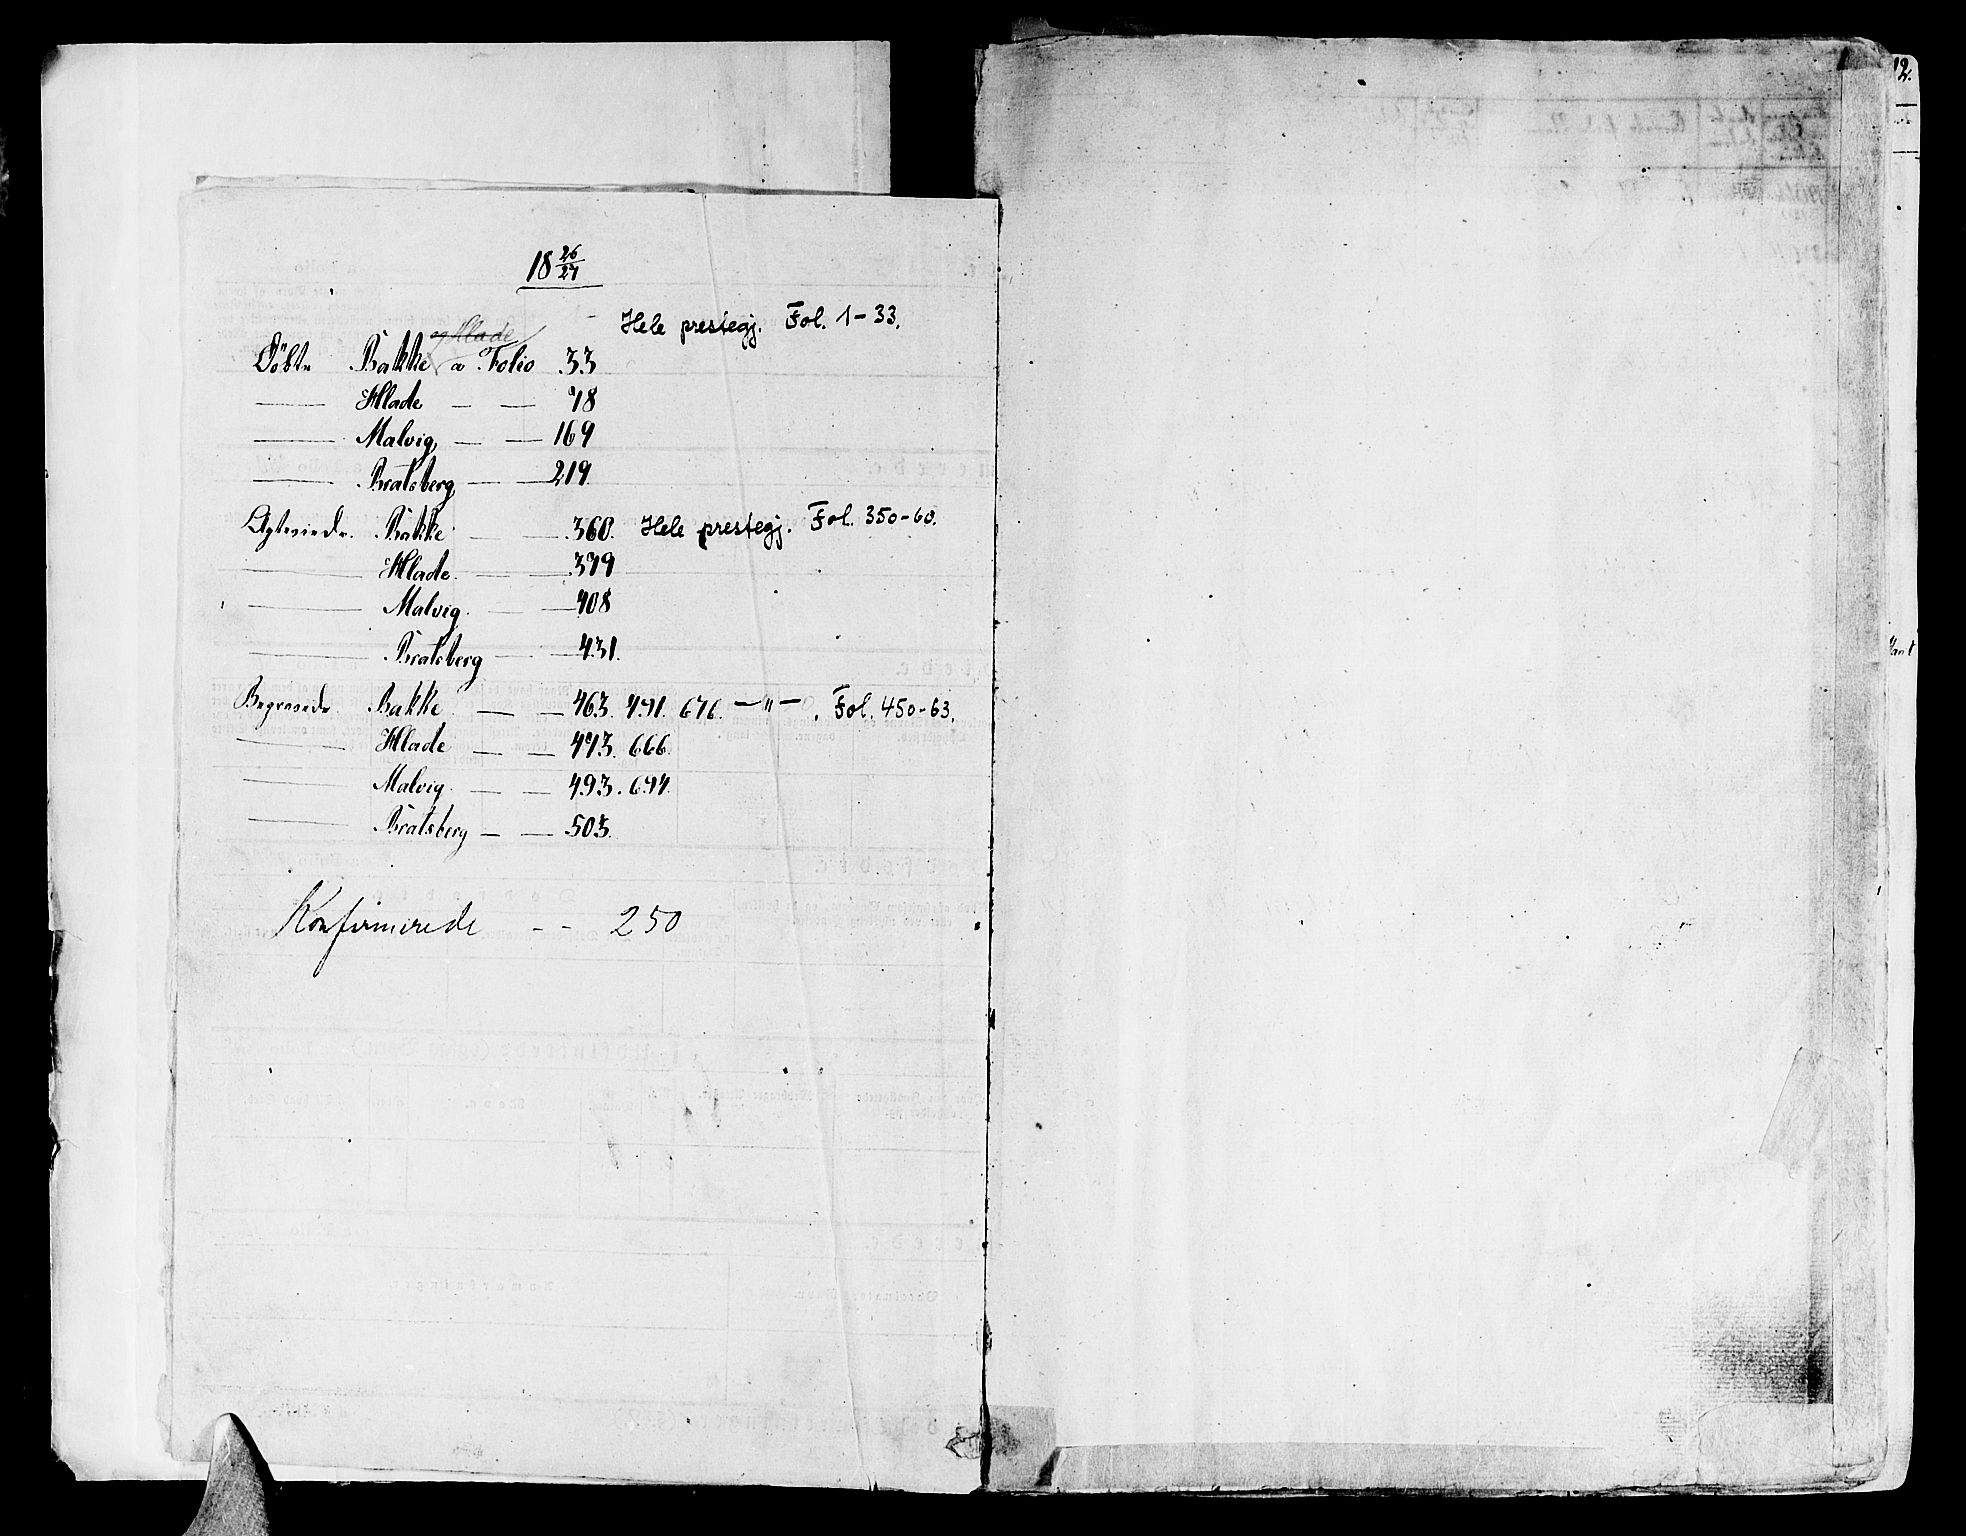 18 26/27
Hele prestegj. Fol. 1-33.
og Hlade
Döbte Bakke a Folio 33
— Hlade — — 78
— Malvig — — 169
— Bratsberg — — 219.
Egteviede. Bakke — — 360. Hele prestegj. Fol. 350-60.
— Hlade. — — 379
— Malvig. — — 408
— Bratsberg — — 431.
Begravede Bakke — — 463. 491. 676. —„— . Fol. 450-63.
— Hlade — — 473. 666.
— Malvig. — — 493. 694.
— Bratsberg — — 503.
Konfirmerede - - 250
12.